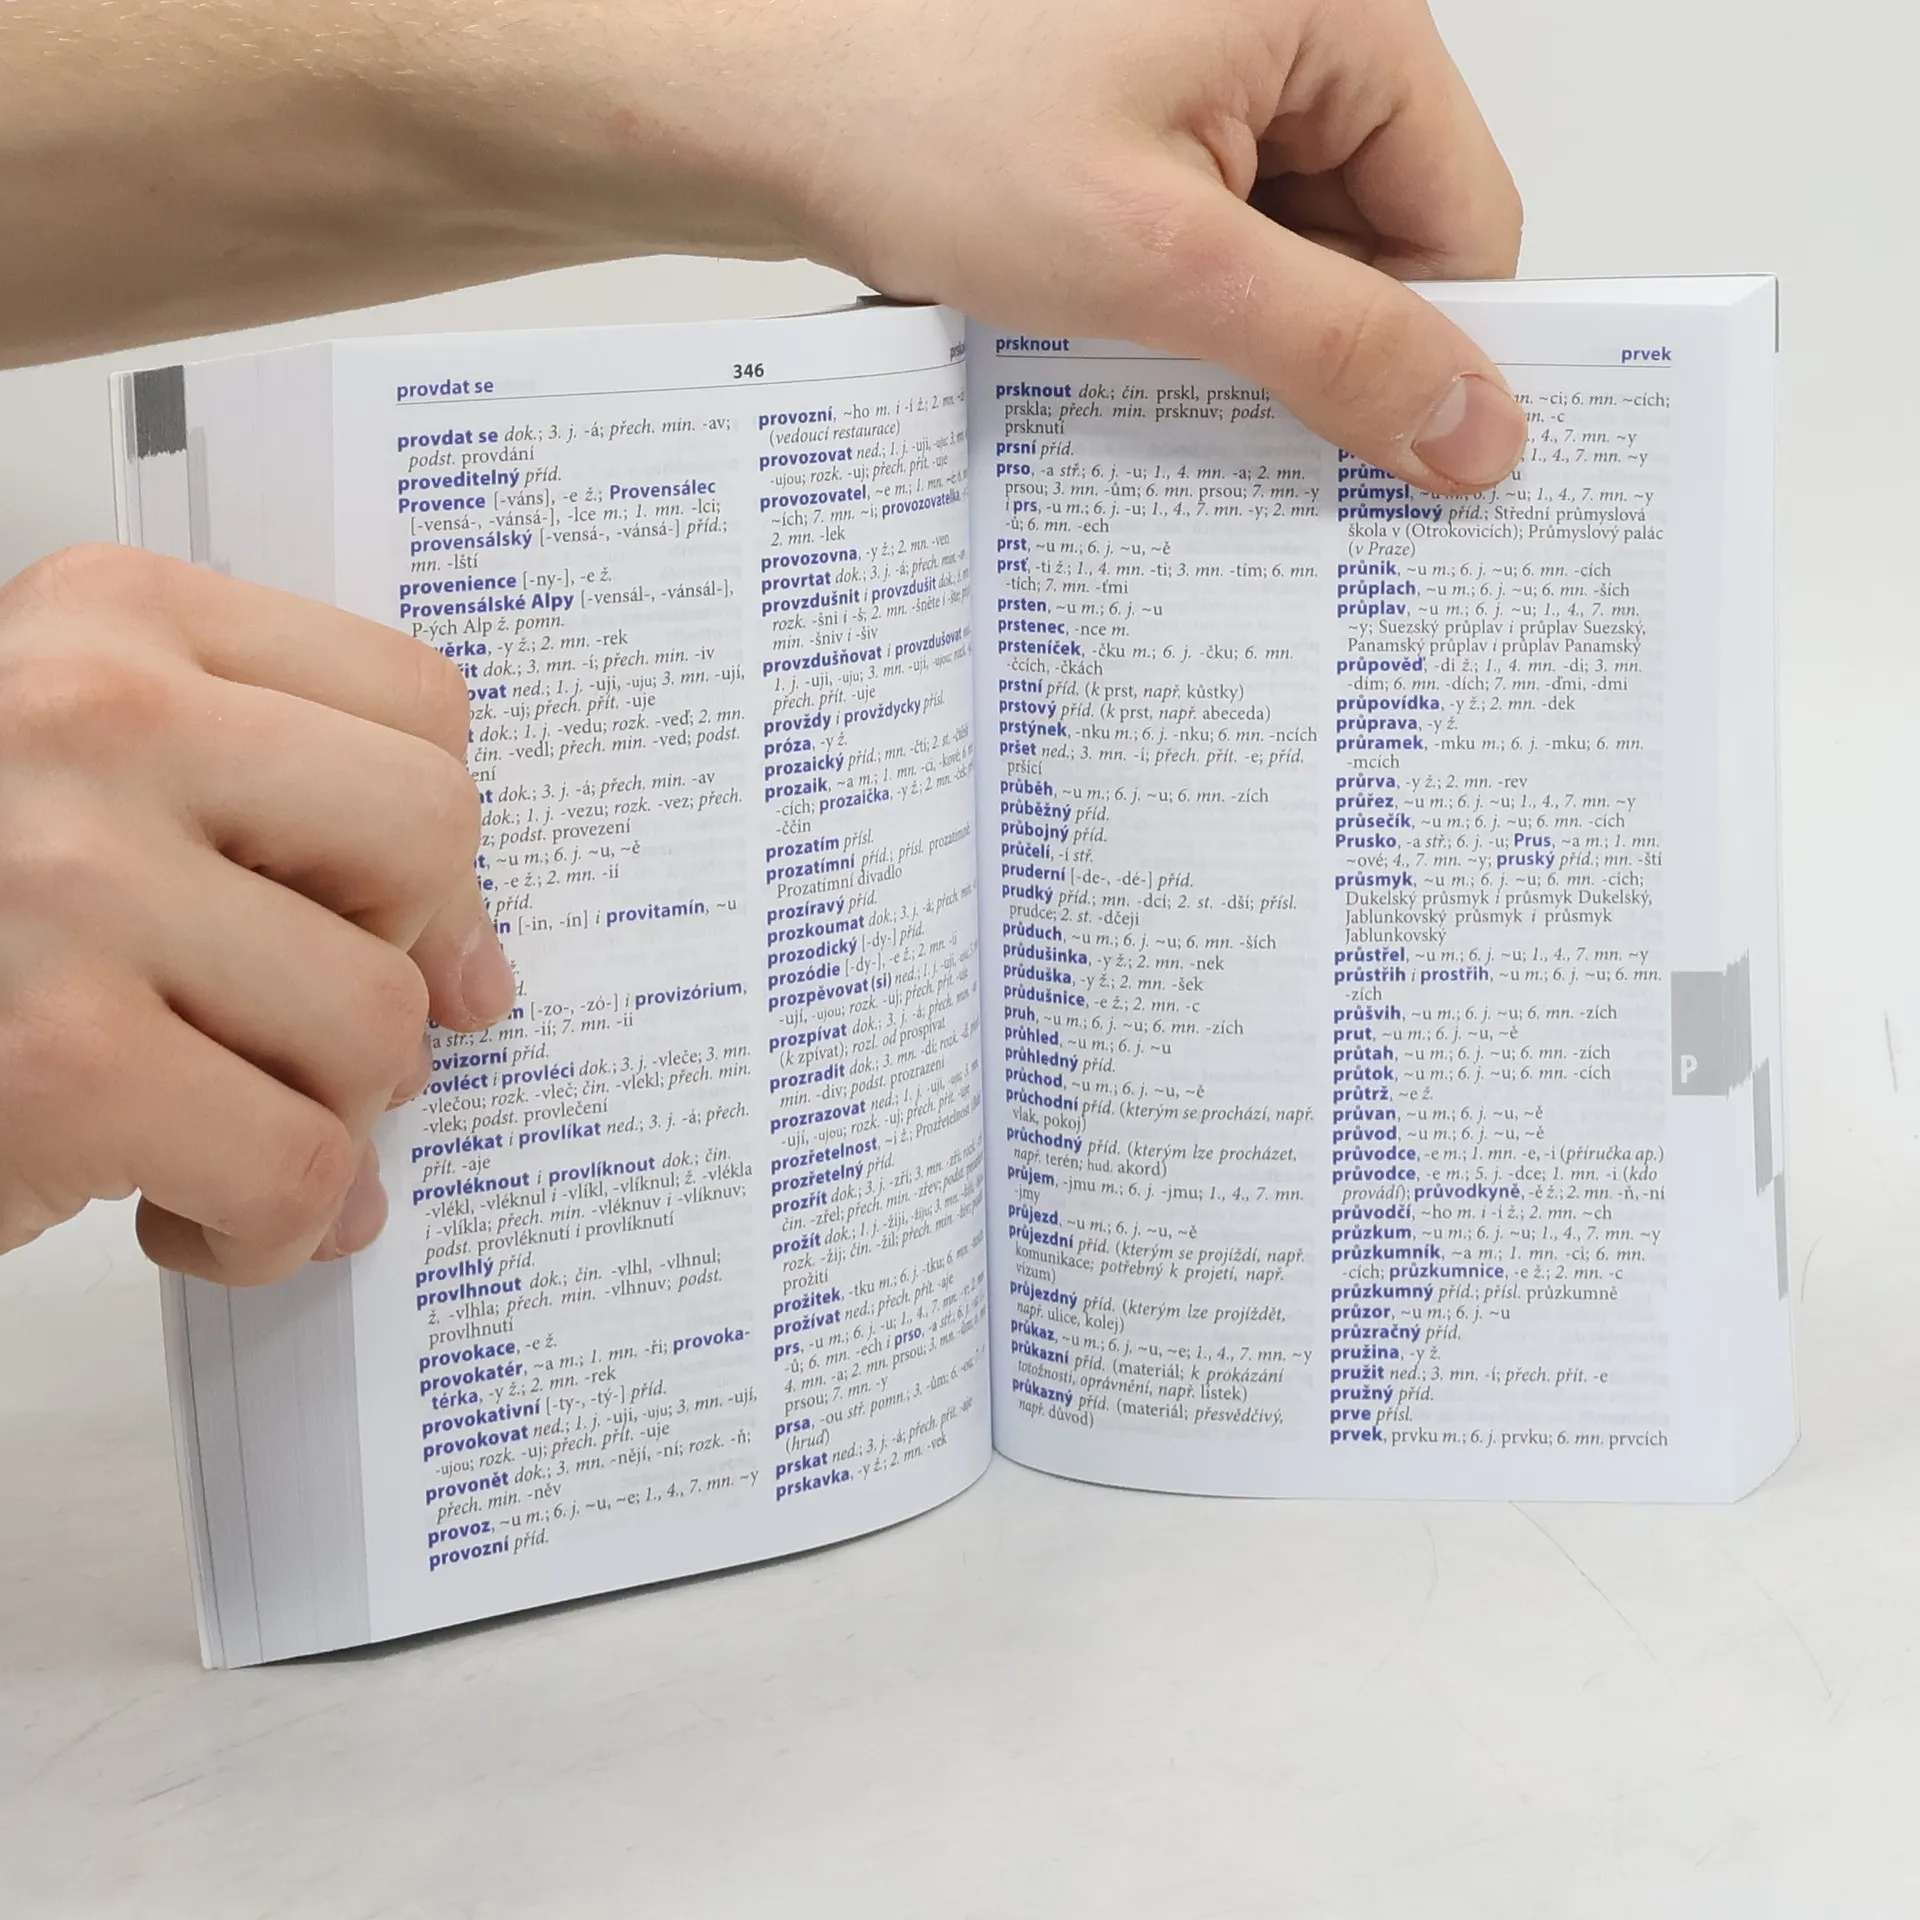 provdat se
346
provdat se dok.; 3. j. -á; přech. min. -av;
podst. provdání
proveditelný příd.
Provence [-váns], -e ž.; Provensálec
[-vensá-, -vánsá-], -lce m.; 1. mn. -lci;
provensálský [-vensá-, -vánsá-] příd.;
mn. -lští
provenience [-ny-], -e ž.
Provensálské Alpy [-vensál-, -vánsál-],
P-ých Alp ž. pomn.
-y ž.; 2. mn. -rek
dok.; 3. mn. -í; přech. min. -iv
ned.; 1. j. -uji, -uju; 3. mn. -ují,
přech. přít. -uje
dok.; 1. j. -vedu; rozk. -veď; 2. mn.
čin. -vedl; přech. min. -ved; podst.
dok.; 3. j. -á; přech. min. -av
dok.; 1. j. -vezu; rozk. -vez; přech.
podst. provezení
~u m.; 6. j. ~u, ~ě
-e ž.; 2. mn. -ií
příd.
[-in, -ín] i provitamín, ~u
[-zo-, -zó-] i provizórium,
2. mn. -ií; 7. mn. -ii
příd.
i provléci dok.; 3. j. -vleče; 3. mn.
-vlečou; rozk. -vleč; čin. -vlekl; přech. min.
-vlek; podst. provlečení
provlékat i provlíkat ned.; 3. j. -á; přech.
přít. -aje
provléknout i provlíknout dok.; čin.
-vlékl, -vléknul i -vlíkl, -vlíknul; ž. -vlékla
i -vlíkla; přech. min. -vléknuv i -vlíknuv;
podst. provléknutí i provlíknutí
provlhlý příd.
provlhnout dok.; čin. -vlhl, -vlhnul;
ž. -vlhla; přech. min. -vlhnuv; podst.
provlhnutí
provokace, -e ž.
provokatér, ~a m.; 1. mn. -ři; provoka-
térka, -y ž.; 2. mn. -rek
provokativní [-ty-, -tý-] příd.
provokovat ned.; 1. j. -uji, -uju; 3. mn. -ují,
-ujou; rozk. -uj; přech. přít. -uje
provonět dok.; 3. mn. -nějí, -ní; rozk. -ň;
přech. min. -něv
provoz, ~u m.; 6. j. ~u, ~e; 1., 4., 7. mn. ~y
provozní příd.
provozní, ~ho m. i -í ž.; 2. mn.
(vedoucí restaurace)
provozovat ned.; 1. j. -uji, -uju; 3. mn.
-ujou; rozk. -uj; přech. přít. -uje
provozovatel, ~e m.; 1. mn. ~é;
~ích; 7. mn. ~i; provozovatelka,
2. mn. -lek
provozovna, -y ž.; 2. mn. -ven
provrtat dok.; 3. j. -á; přech. min.
provzdušnit i provzdušit dok.;
rozk. -šni i -š; 2. mn. -šněte i
min. -šniv i -šiv
provzdušňovat i provzdušovat
1. j. -uji, -uju; 3. mn. -ují, -ujou;
přech. přít. -uje
provždy i provždycky přísl.
próza, -y ž.
prozaický příd.; mn. -čtí; 2. st.
prozaik, ~a m.; 1. mn. -ci, -kové; 6. mn.
-cích; prozaička, -y ž.; 2. mn. -ček;
-ččin
prozatím přísl.
prozatímní příd.; přísl. prozatímně
Prozatímní divadlo
prozíravý příd.
prozkoumat dok.; 3. j. -á; přech. min.
prozodický [-dy-] příd.
prozódie [-dy-], -e ž.; 2. mn. -ií
prozpěvovat (si) ned.; 1. j. -uji,
-ují, -ujou; rozk. -uj; přech. přít. -uje
prozpívat dok.; 3. j. -á; přech. min.
(k zpívat); rozl. od prospívat
prozradit dok.; 3. mn. -dí; rozk.
min. -div; podst. prozrazení
prozrazovat ned.; 1. j. -uji,
-ují, -ujou; rozk. -uj; přech. přít. -uje
prozřetelnost, ~i ž.; Prozřetelnost
prozřetelný příd.
prozřít dok.; 3. j. -zří; 3. mn. -zří;
čin. -zřel; přech. min. -zřev; podst.
prožít dok.; 1. j. -žiji,
rozk. -žij; čin. -žil; přech. min.
prožití
prožitek, -tku m.; 6. j. -tku; 6. mn.
prožívat ned.; přech. přít. -aje
prs, -u m.; 6. j. -u; 1., 4., 7. mn. -y; 2. mn.
-ů; 6. mn. -ech i prso, -a stř.; 6. j.
4. mn. -a; 2. mn. prsou; 3. mn. -ům; 6.
prsou; 7. mn. -y
prsa, -ou stř. pomn.; 3. -ům; 6.
(hruď)
prskat ned.; 3. j. -á; přech. přít. -aje
prskavka, -y ž.; 2. mn. -vek
prsknout
prvek
prsknout dok.; čin. prskl, prsknul;
prskla; přech. min. prsknuv; podst.
prsknutí
prsní příd.
prso, -a stř.; 6. j. -u; 1., 4. mn. -a; 2. mn.
prsou; 3. mn. -ům; 6. mn. prsou; 7. mn. -y
i prs, -u m.; 6. j. -u; 1., 4., 7. mn. -y; 2. mn.
-ů; 6. mn. -ech
prst, ~u m.; 6. j. ~u, ~ě
prsť, -ti ž.; 1., 4. mn. -ti; 3. mn. -tím; 6. mn.
-tích; 7. mn. -ťmi
prsten, ~u m.; 6. j. ~u
prstenec, -nce m.
prsteníček, -čku m.; 6. j. -čku; 6. mn.
-čcích, -čkách
prstní příd. (k prst, např. kůstky)
prstový příd. (k prst, např. abeceda)
prstýnek, -nku m.; 6. j. -nku; 6. mn. -ncích
pršet ned.; 3. mn. -í; přech. přít. -e; příd.
pršící
průběh, ~u m.; 6. j. ~u; 6. mn. -zích
průběžný příd.
průbojný příd.
průčelí, -í stř.
pruderní [-de-, -dé-] příd.
prudký příd.; mn. -dcí; 2. st. -dší; přísl.
prudce; 2. st. -dčeji
průduch, ~u m.; 6. j. ~u; 6. mn. -ších
průdušinka, -y ž.; 2. mn. -nek
průduška, -y ž.; 2. mn. -šek
průdušnice, -e ž.; 2. mn. -c
pruh, ~u m.; 6. j. ~u; 6. mn. -zích
průhled, ~u m.; 6. j. ~u
průhledný příd.
průchod, ~u m.; 6. j. ~u, ~ě
průchodní příd. (kterým se prochází, např.
vlak, pokoj)
průchodný příd. (kterým lze procházet,
např. terén; hud. akord)
průjem, -jmu m.; 6. j. -jmu; 1., 4., 7. mn.
-jmy
průjezd, ~u m.; 6. j. ~u, ~ě
průjezdní příd. (kterým se projíždí, např.
komunikace; potřebný k projetí, např.
vízum)
průjezdný příd. (kterým lze projíždět,
např. ulice, kolej)
průkaz, ~u m.; 6. j. ~u, ~e; 1., 4., 7. mn. ~y
průkazní příd. (materiál; k prokázání
totožnosti, oprávnění, např. lístek)
průkazný příd. (materiál; přesvědčivý,
např. důvod)
~ci; 6. mn. ~cích;
-c
4., 7. mn. ~y
1., 4., 7. mn. ~y
průmysl, ~u m.; 6. j. ~u; 1., 4., 7. mn. ~y
průmyslový příd.; Střední průmyslová
škola v (Otrokovicích); Průmyslový palác
(v Praze)
průnik, ~u m.; 6. j. ~u; 6. mn. -cích
průplach, ~u m.; 6. j. ~u; 6. mn. -ších
průplav, ~u m.; 6. j. ~u; 1., 4., 7. mn.
~y; Suezský průplav i průplav Suezský,
Panamský průplav i průplav Panamský
průpověď, -di ž.; 1., 4. mn. -di; 3. mn.
-dím; 6. mn. -dích; 7. mn. -ďmi, -dmi
průpovídka, -y ž.; 2. mn. -dek
průprava, -y ž.
průramek, -mku m.; 6. j. -mku; 6. mn.
-mcích
průrva, -y ž.; 2. mn. -rev
průřez, ~u m.; 6. j. ~u; 1., 4., 7. mn. ~y
průsečík, ~u m.; 6. j. ~u; 6. mn. -cích
Prusko, -a stř.; 6. j. -u; Prus, ~a m.; 1. mn.
~ové; 4., 7. mn. ~y; pruský příd.; mn. -ští
průsmyk, ~u m.; 6. j. ~u; 6. mn. -cích;
Dukelský průsmyk i průsmyk Dukelský,
Jablunkovský průsmyk i průsmyk
Jablunkovský
průstřel, ~u m.; 6. j. ~u; 1., 4., 7. mn. ~y
průstřih i prostřih, ~u m.; 6. j. ~u; 6. mn.
-zích
průšvih, ~u m.; 6. j. ~u; 6. mn. -zích
prut, ~u m.; 6. j. ~u, ~ě
průtah, ~u m.; 6. j. ~u; 6. mn. -zích
průtok, ~u m.; 6. j. ~u; 6. mn. -cích
průtrž, ~e ž.
průvan, ~u m.; 6. j. ~u, ~ě
průvod, ~u m.; 6. j. ~u, ~ě
průvodce, -e m.; 1. mn. -e, -i (příručka ap.)
průvodce, -e m.; 5. j. -dce; 1. mn. -i (kdo
provádí); průvodkyně, -ě ž.; 2. mn. -ň, -ní
průvodčí, ~ho m. i -í ž.; 2. mn. ~ch
průzkum, ~u m.; 6. j. ~u; 1., 4., 7. mn. ~y
průzkumník, ~a m.; 1. mn. -ci; 6. mn.
-cích; průzkumnice, -e ž.; 2. mn. -c
průzkumný příd.; přísl. průzkumně
průzor, ~u m.; 6. j. ~u
průzračný příd.
pružina, -y ž.
pružit ned.; 3. mn. -í; přech. přít. -e
pružný příd.
prve přísl.
prvek, prvku m.; 6. j. prvku; 6. mn. prvcích
P